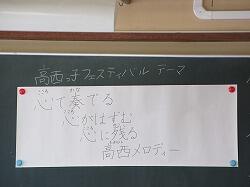 高西っ子フェスティバル テーマ
心で奏でる
心がはずむ
心に残る
高西メロディー